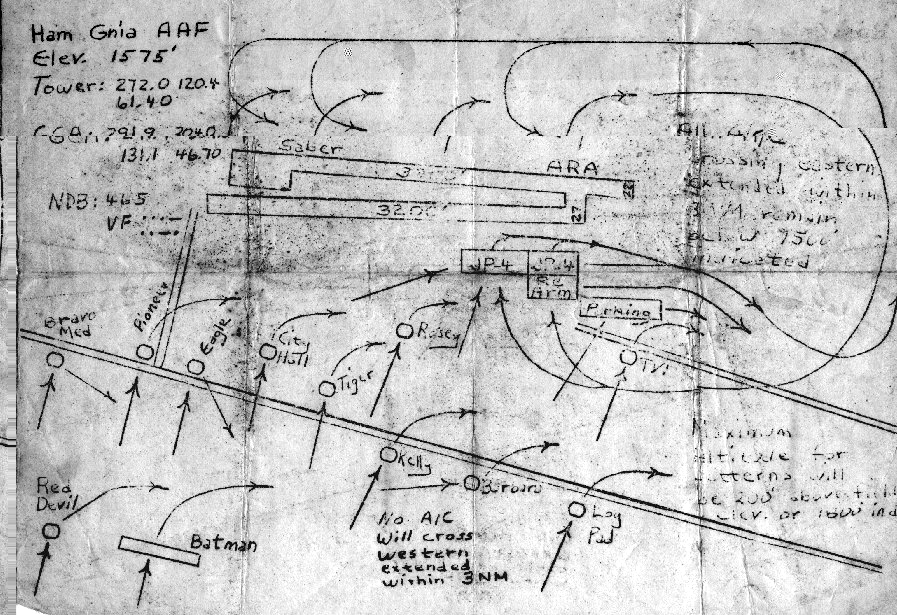 Ham Gnia AAF
Elev. 1575'
Tower: 272.0 120.4
61.40
131.1 46.70
NDB: 465
VF
Saber
ARA
3200'
22
22
JP.4
JP.4
Re
Arm
Parking
All A/C
crossing eastern
extended within
3 NM remain
below 9500'
indicated
Bravo
Med
Pioneer
Eagle
City
Hall
Rosey
Tiger
TVI
Kelly
Maximum
altitude for
patterns will
be 200' above field
elev. or 1800' ind
Red
Devil
Batman
Log
Pad
No A/C
will cross
western
extended
within 3 NM